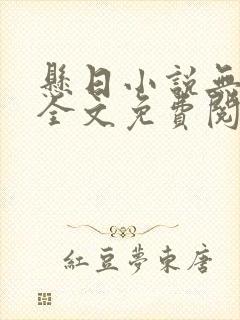 懸日小說無
全文免費閱
紅豆夢東唐